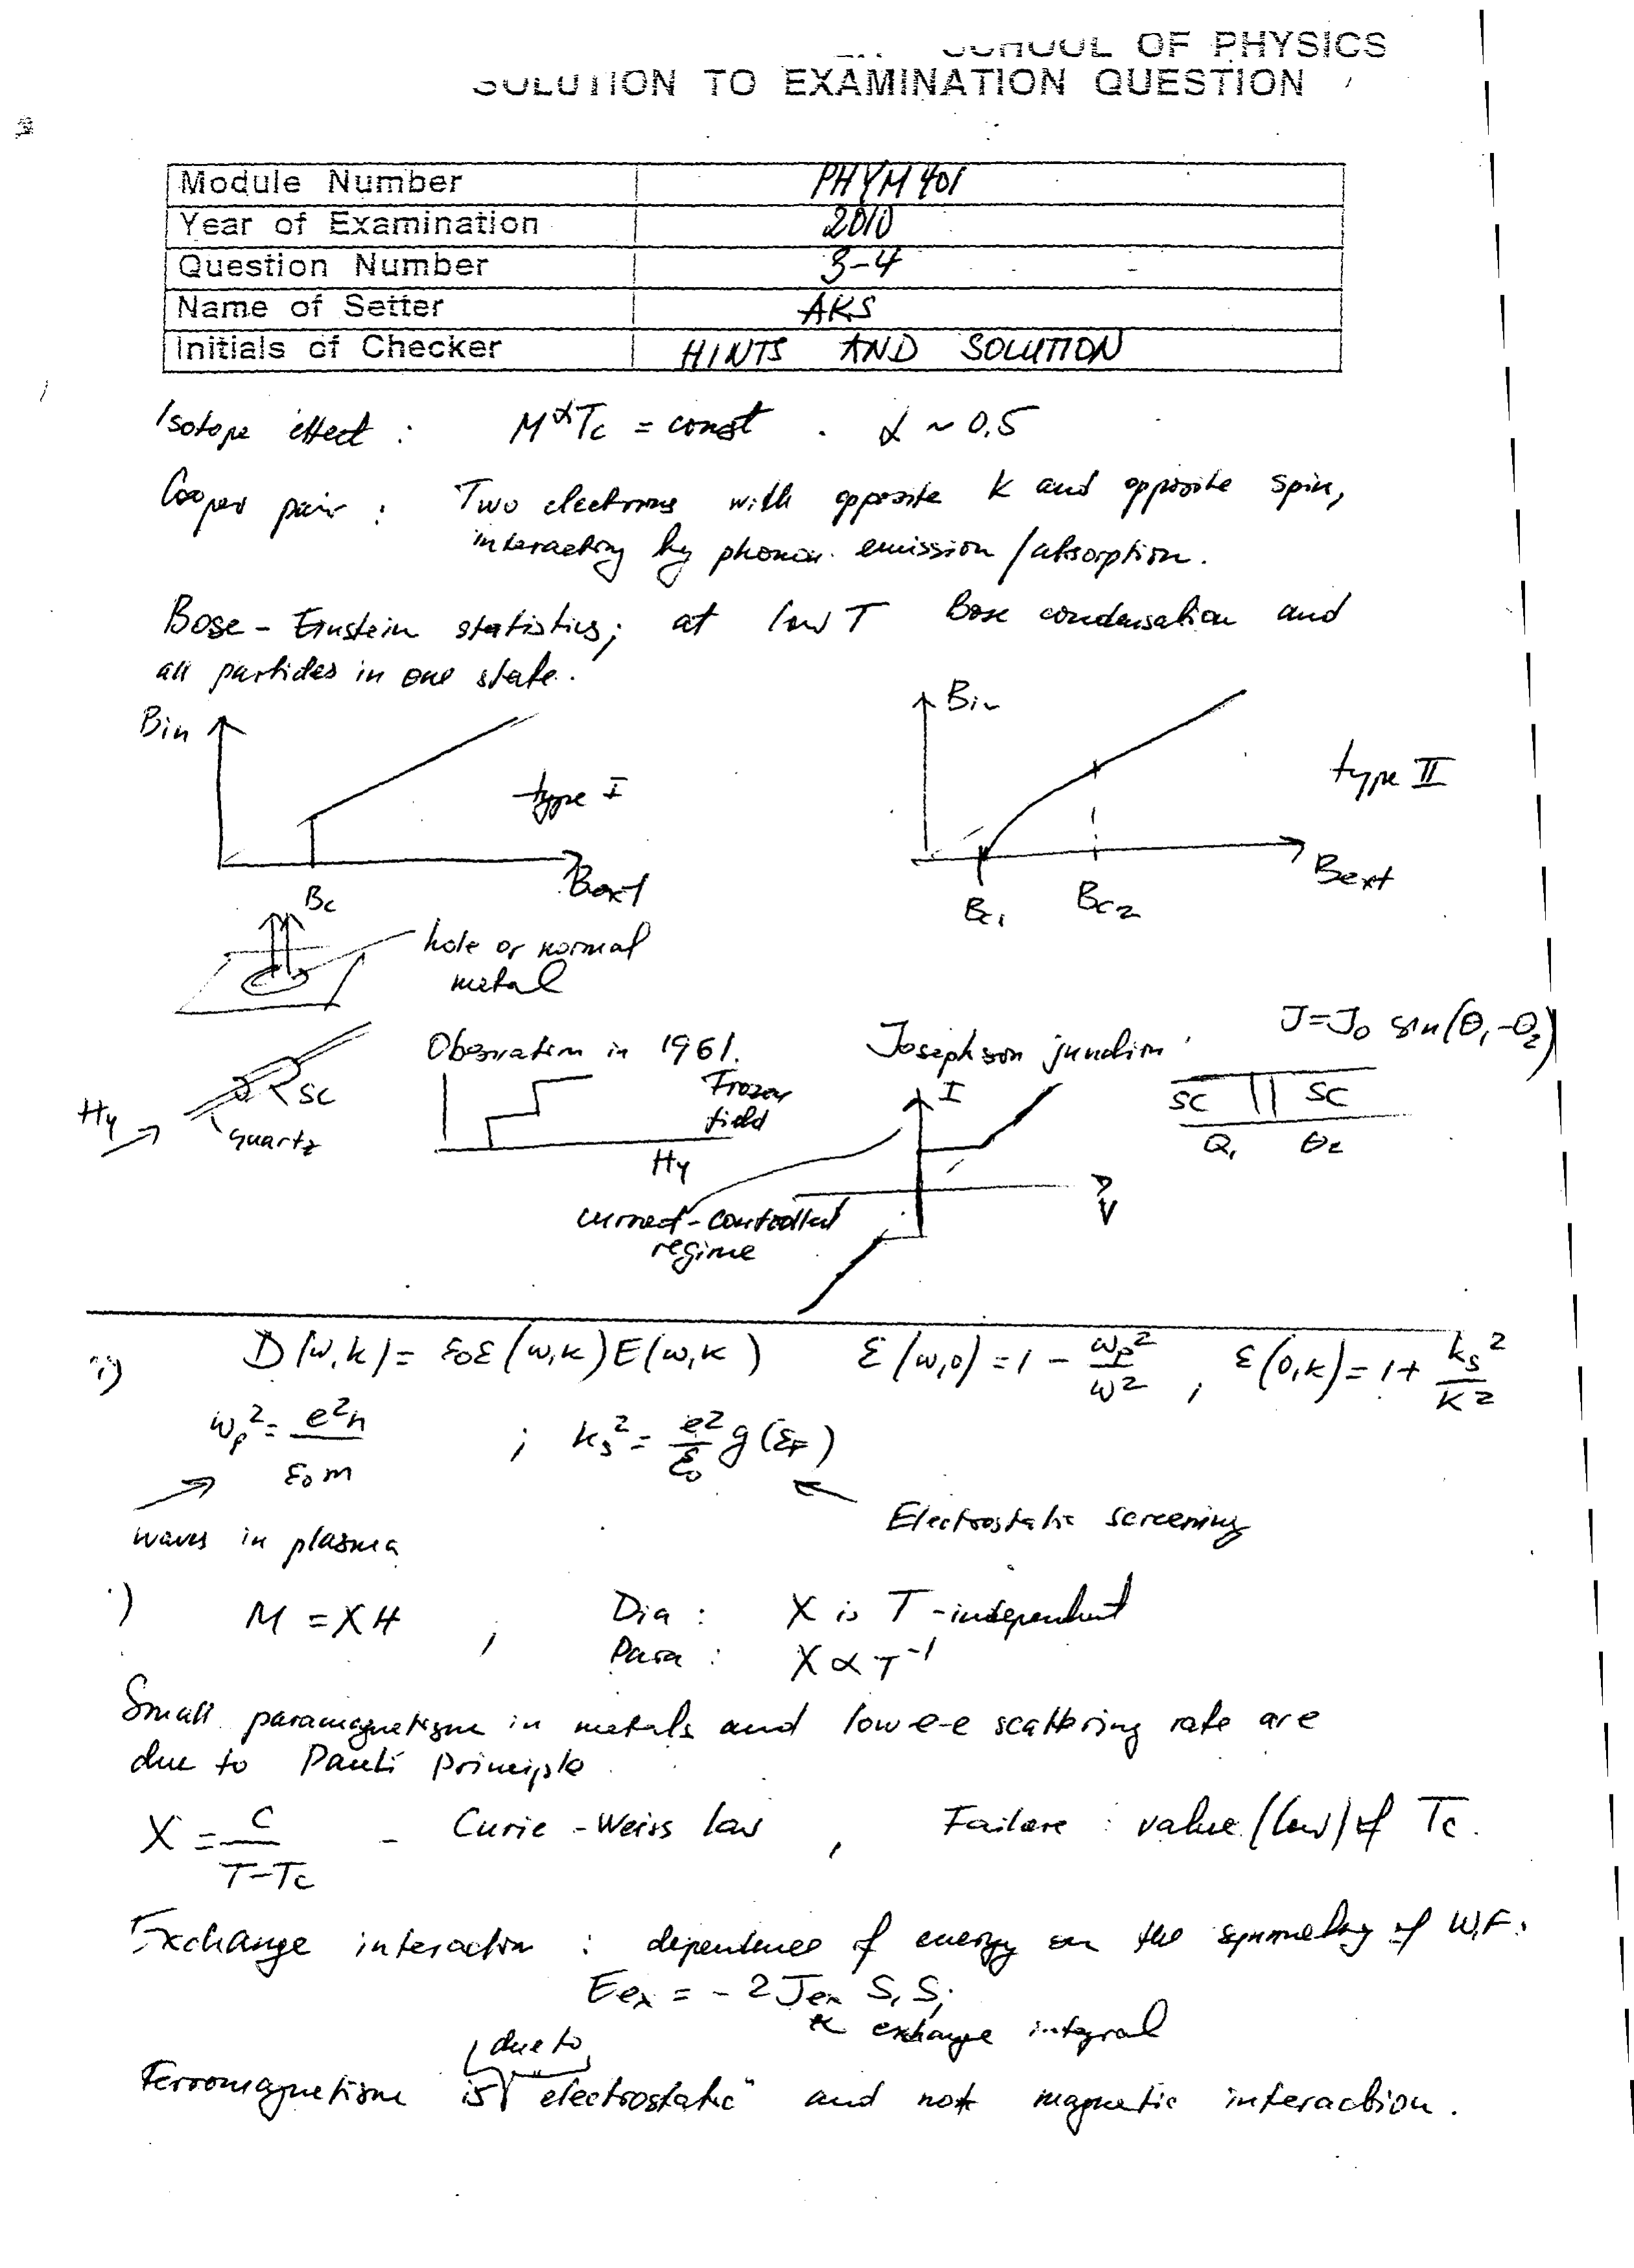 SCHOOL OF PHYSICS
SOLUTION TO EXAMINATION QUESTION
Module Number PHYM401
Year of Examination 2010
Question Number 3-4
Name of Setter AKS
Initials of Checker HINTS AND SOLUTION
Isotope effect : M^α Tc = const . α ~ 0.5
Cooper pair : Two electrons with opposite k and opposite spin,
interacting by phonon emission / absorption.
Bose - Einstein statistics; at low T Bose condensation and
all particles in one state.
Bin
type I
Bext
Bc
Bin
type II
Bext
Bc1 Bc2
hole or normal
metal
Hy
SC
quartz
Observation in 1961.
Frozen
field
Hy
Josephson junction J=J0 sin(θ1-θ2)
I
V
SC SC
θ1 θ2
current-controlled
regime
i) D(ω,k) = ε0ε(ω,k)E(ω,k) ε(ω,0) = 1 - ωp²/ω² , ε(0,k) = 1 + ks²/k²
ωp² = e²n/ε0m ; ks² = e²/ε0 g(εF)
waves in plasma
Electrostatic screening
) M = XH , Dia : X is T-independent
Para : X ∝ T⁻¹
Small paramagnetism in metals and low e-e scattering rate are
due to Pauli Principle
X = C/(T-Tc) - Curie-Weiss law , Failure : value (low) of Tc.
Exchange interaction : dependence of energy on the symmetry of W.F.
Eex = - 2 Jex Si Sj
exchange integral
due to
Ferromagnetism is "electrostatic" and not magnetic interaction.